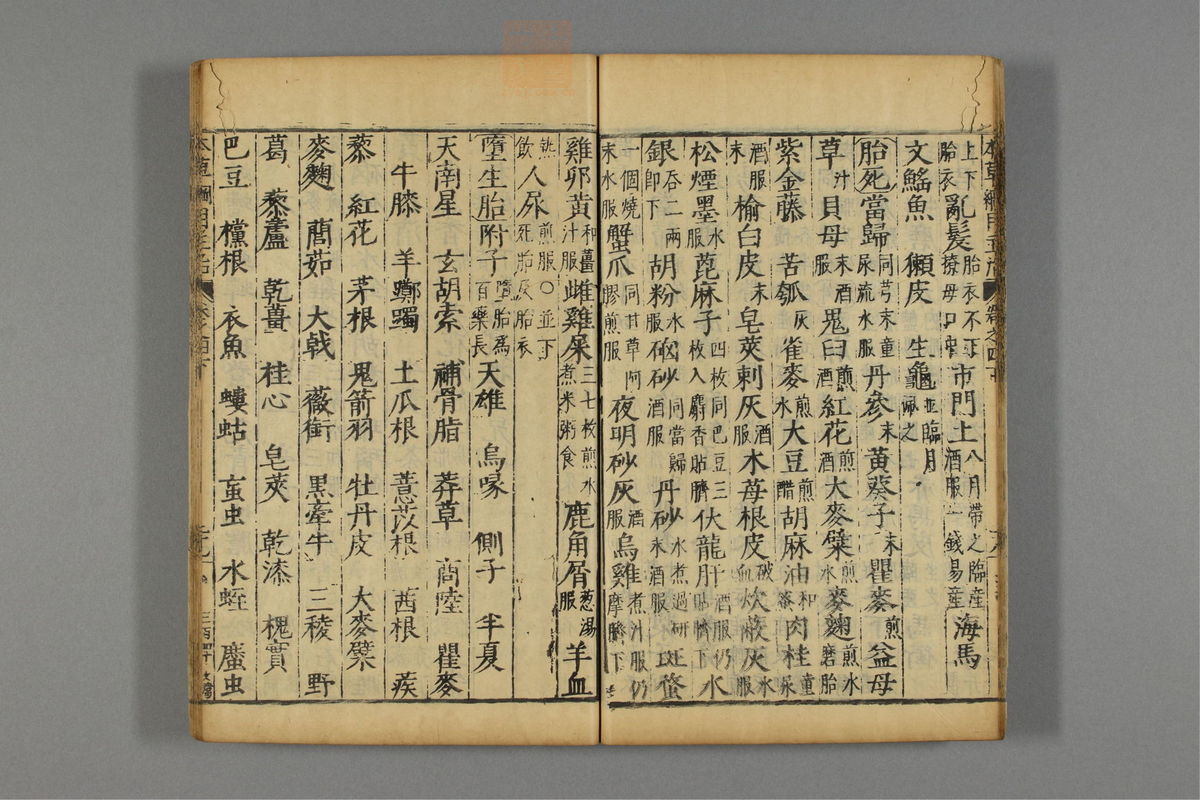 上下胎衣亂髮胎衣不下撩母口中市門土八月帶之臨產酒服一錢易產海馬
文鰩魚　獱皮　生龜並臨月佩之
胎死當歸同芎末童尿流水服丹參末黃葵子末瞿麥煎益母
草汁貝母末酒服鬼臼煎酒紅花煎酒大麥櫱煎水麥麴煎水磨胎
紫金藤　苦瓠灰雀麥煎水大豆煎醋胡麻油和蜜肉桂童尿
酒服末榆白皮末皂莢刺灰酒服木莓根皮破血炊蔽灰水服
松煙墨水服蓖麻子四枚同巴豆三枚入麝香貼臍伏龍肝酒服仍貼臍下水
銀吞二兩即下胡粉水服硇砂同當歸酒服丹砂水煮過研末酒服斑蝥
一個燒末水服蟹爪同甘草阿膠煎服夜明砂灰酒服烏雞煮汁服仍摩臍下
本草綱目主治　卷之四下
雞卵黃和薑汁服雌雞屎三七枚煎水煮米粥食鹿角屑葱湯服羊血
熱飲人尿煎服○並下死胎及胎衣
墮生胎附子墮胎為百藥長天雄　烏喙　側子　半夏
天南星　玄胡索　補骨脂　莽草　商陸　瞿麥
牛膝　羊躑躅　土瓜根　薏苡根　茜根　蒺
藜　紅花　茅根　鬼箭羽　牡丹皮　大麥櫱
麥麴　䕡茹　大戟　薇銜　黑牽牛　三稜　野
葛　藜蘆　乾薑　桂心　皂莢　乾漆　槐實
巴豆　欓根　衣魚　螻蛄　䖟虫　水蛭　䗪虫
本草綱目主治